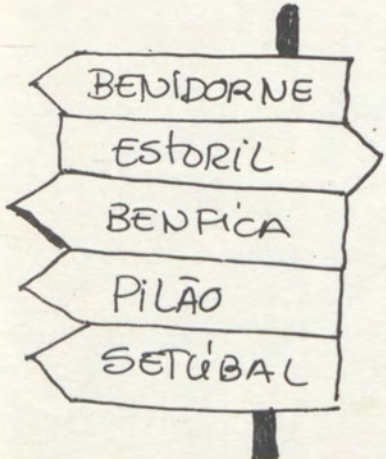 BENIDORNE
ESTORIL
BENFICA
PILÃO
SETÚBAL